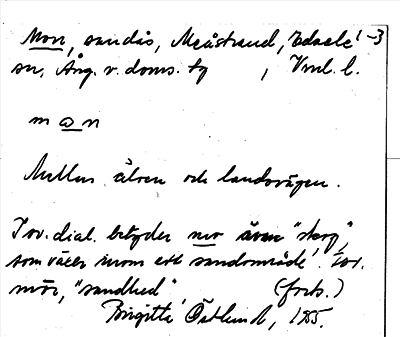 Mon, sandås, Meåstrand, Edsele 1-3
sn, Ång. v. doms. tg , Vml. l.
m o n
Mellan älven och landsvägen.
I ov. dial. betyder mo även "skog",
som växer inom ett sandområde. Jvr.
mör, "sandhed" (forts.)
Brigitta Östlund, 1 85.